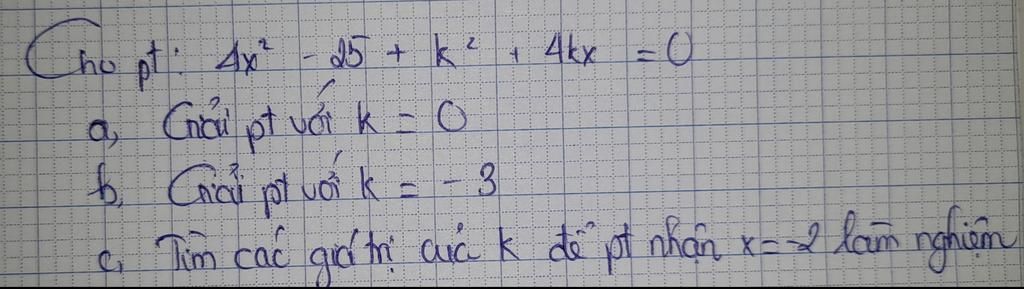 Cho pt: 4x² - 25 + k² + 4kx = 0
a, Giải pt với k = 0
b, Giải pt với k = -3
c, Tìm các giá trị của k để pt nhận x = -2 làm nghiệm